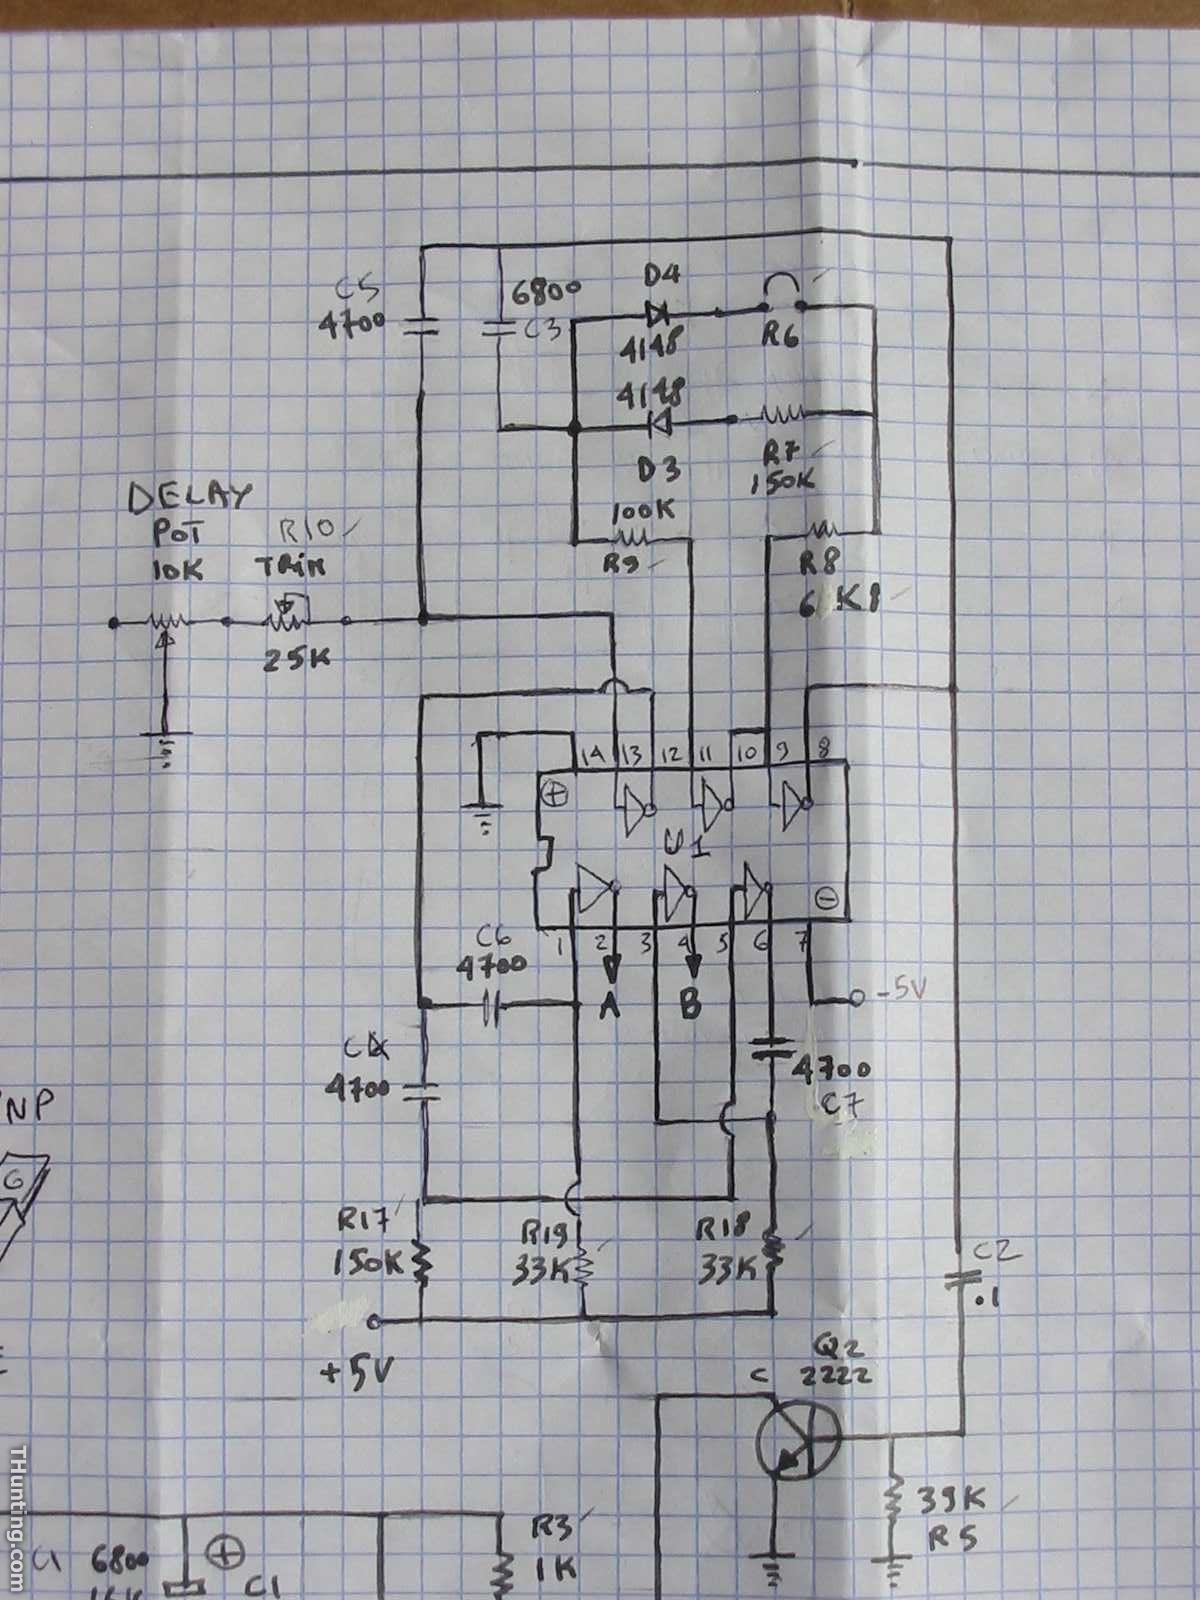 C5
4700
6800
C3
D4
4148
R6
4148
D3
R7
150K
100K
R9
R8
6 K8
DELAY
POT
10K
R10
TRIM
25K
14 13 12 11 10 9 8
U1
1 2 3 4 5 6 7
A
B
-5V
C6
4700
C4
4700
4700
C7
NP
G
R17
150K
R19
33K
R18
33K
+5V
C2
.1
Q2
2222
C
39K
R5
R3
1K
6800
C1
THunting.com